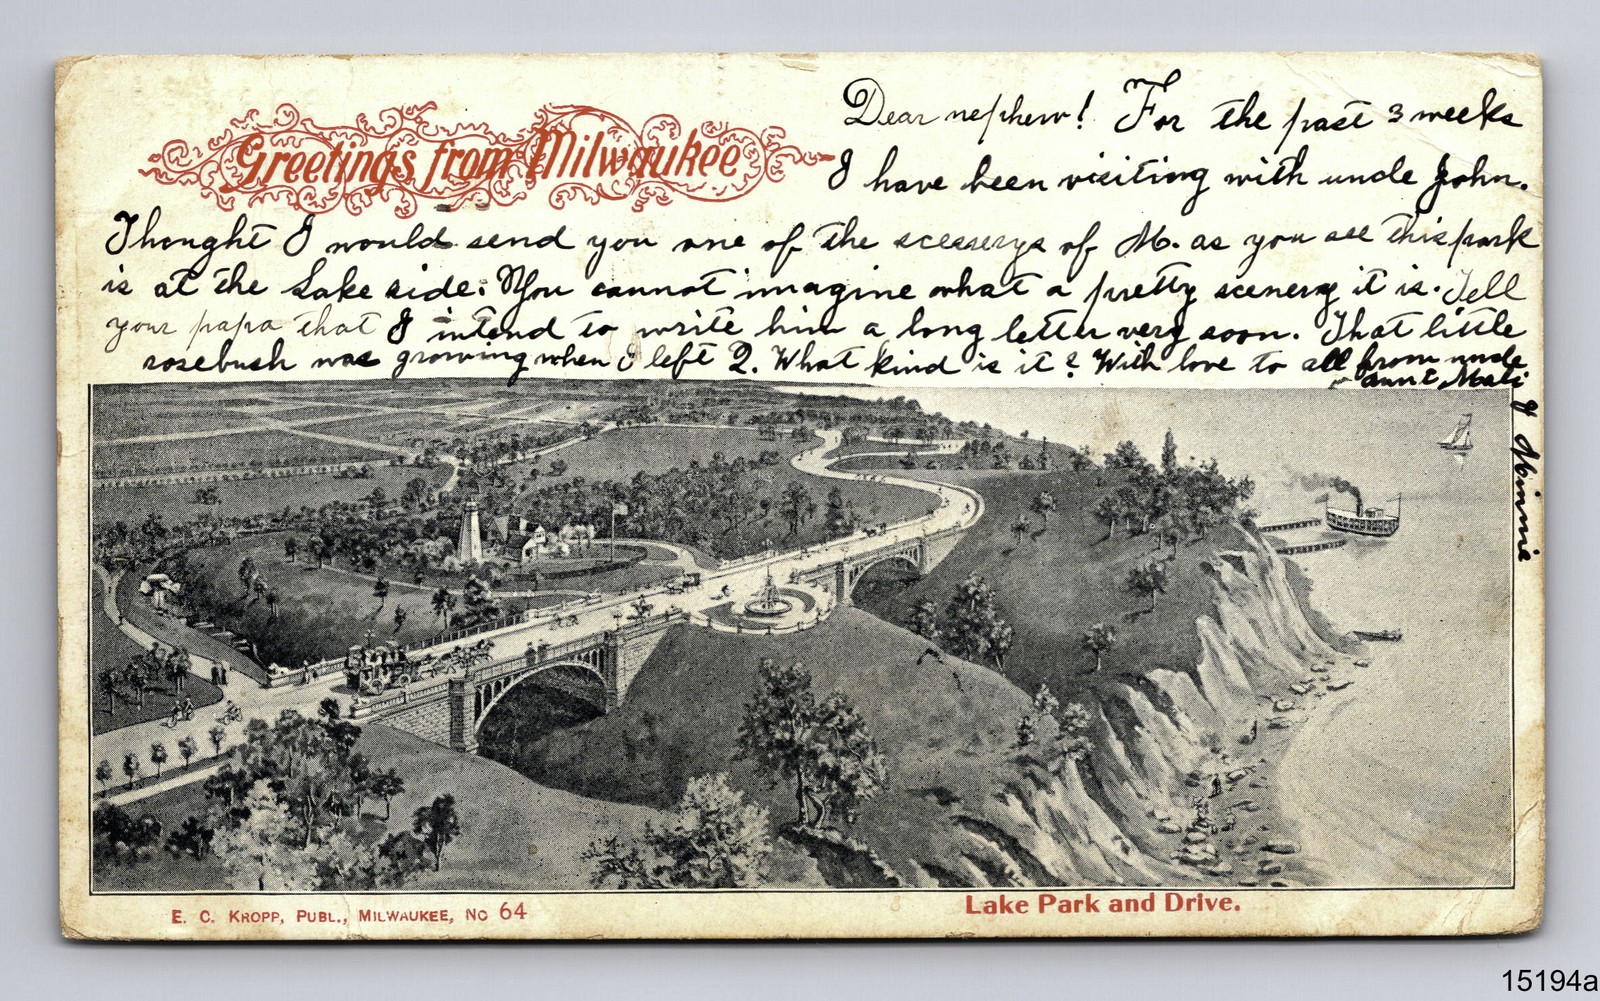 Greetings from Milwaukee
Dear nephew! For the past 3 weeks
I have been visiting with uncle John.
Thought I would send you one of the scesserys of M. as you see this park
is at the Lake side. You cannot imagine what a pretty scenery it is. Tell
your papa that I intend to write him a long letter very soon. That little
rosebush was growing when I left 2. What kind is it? With love to all from uncle
aunt Mali
& Minnie
E. C. KROPP, PUBL., MILWAUKEE, NO 64
Lake Park and Drive.
15194a